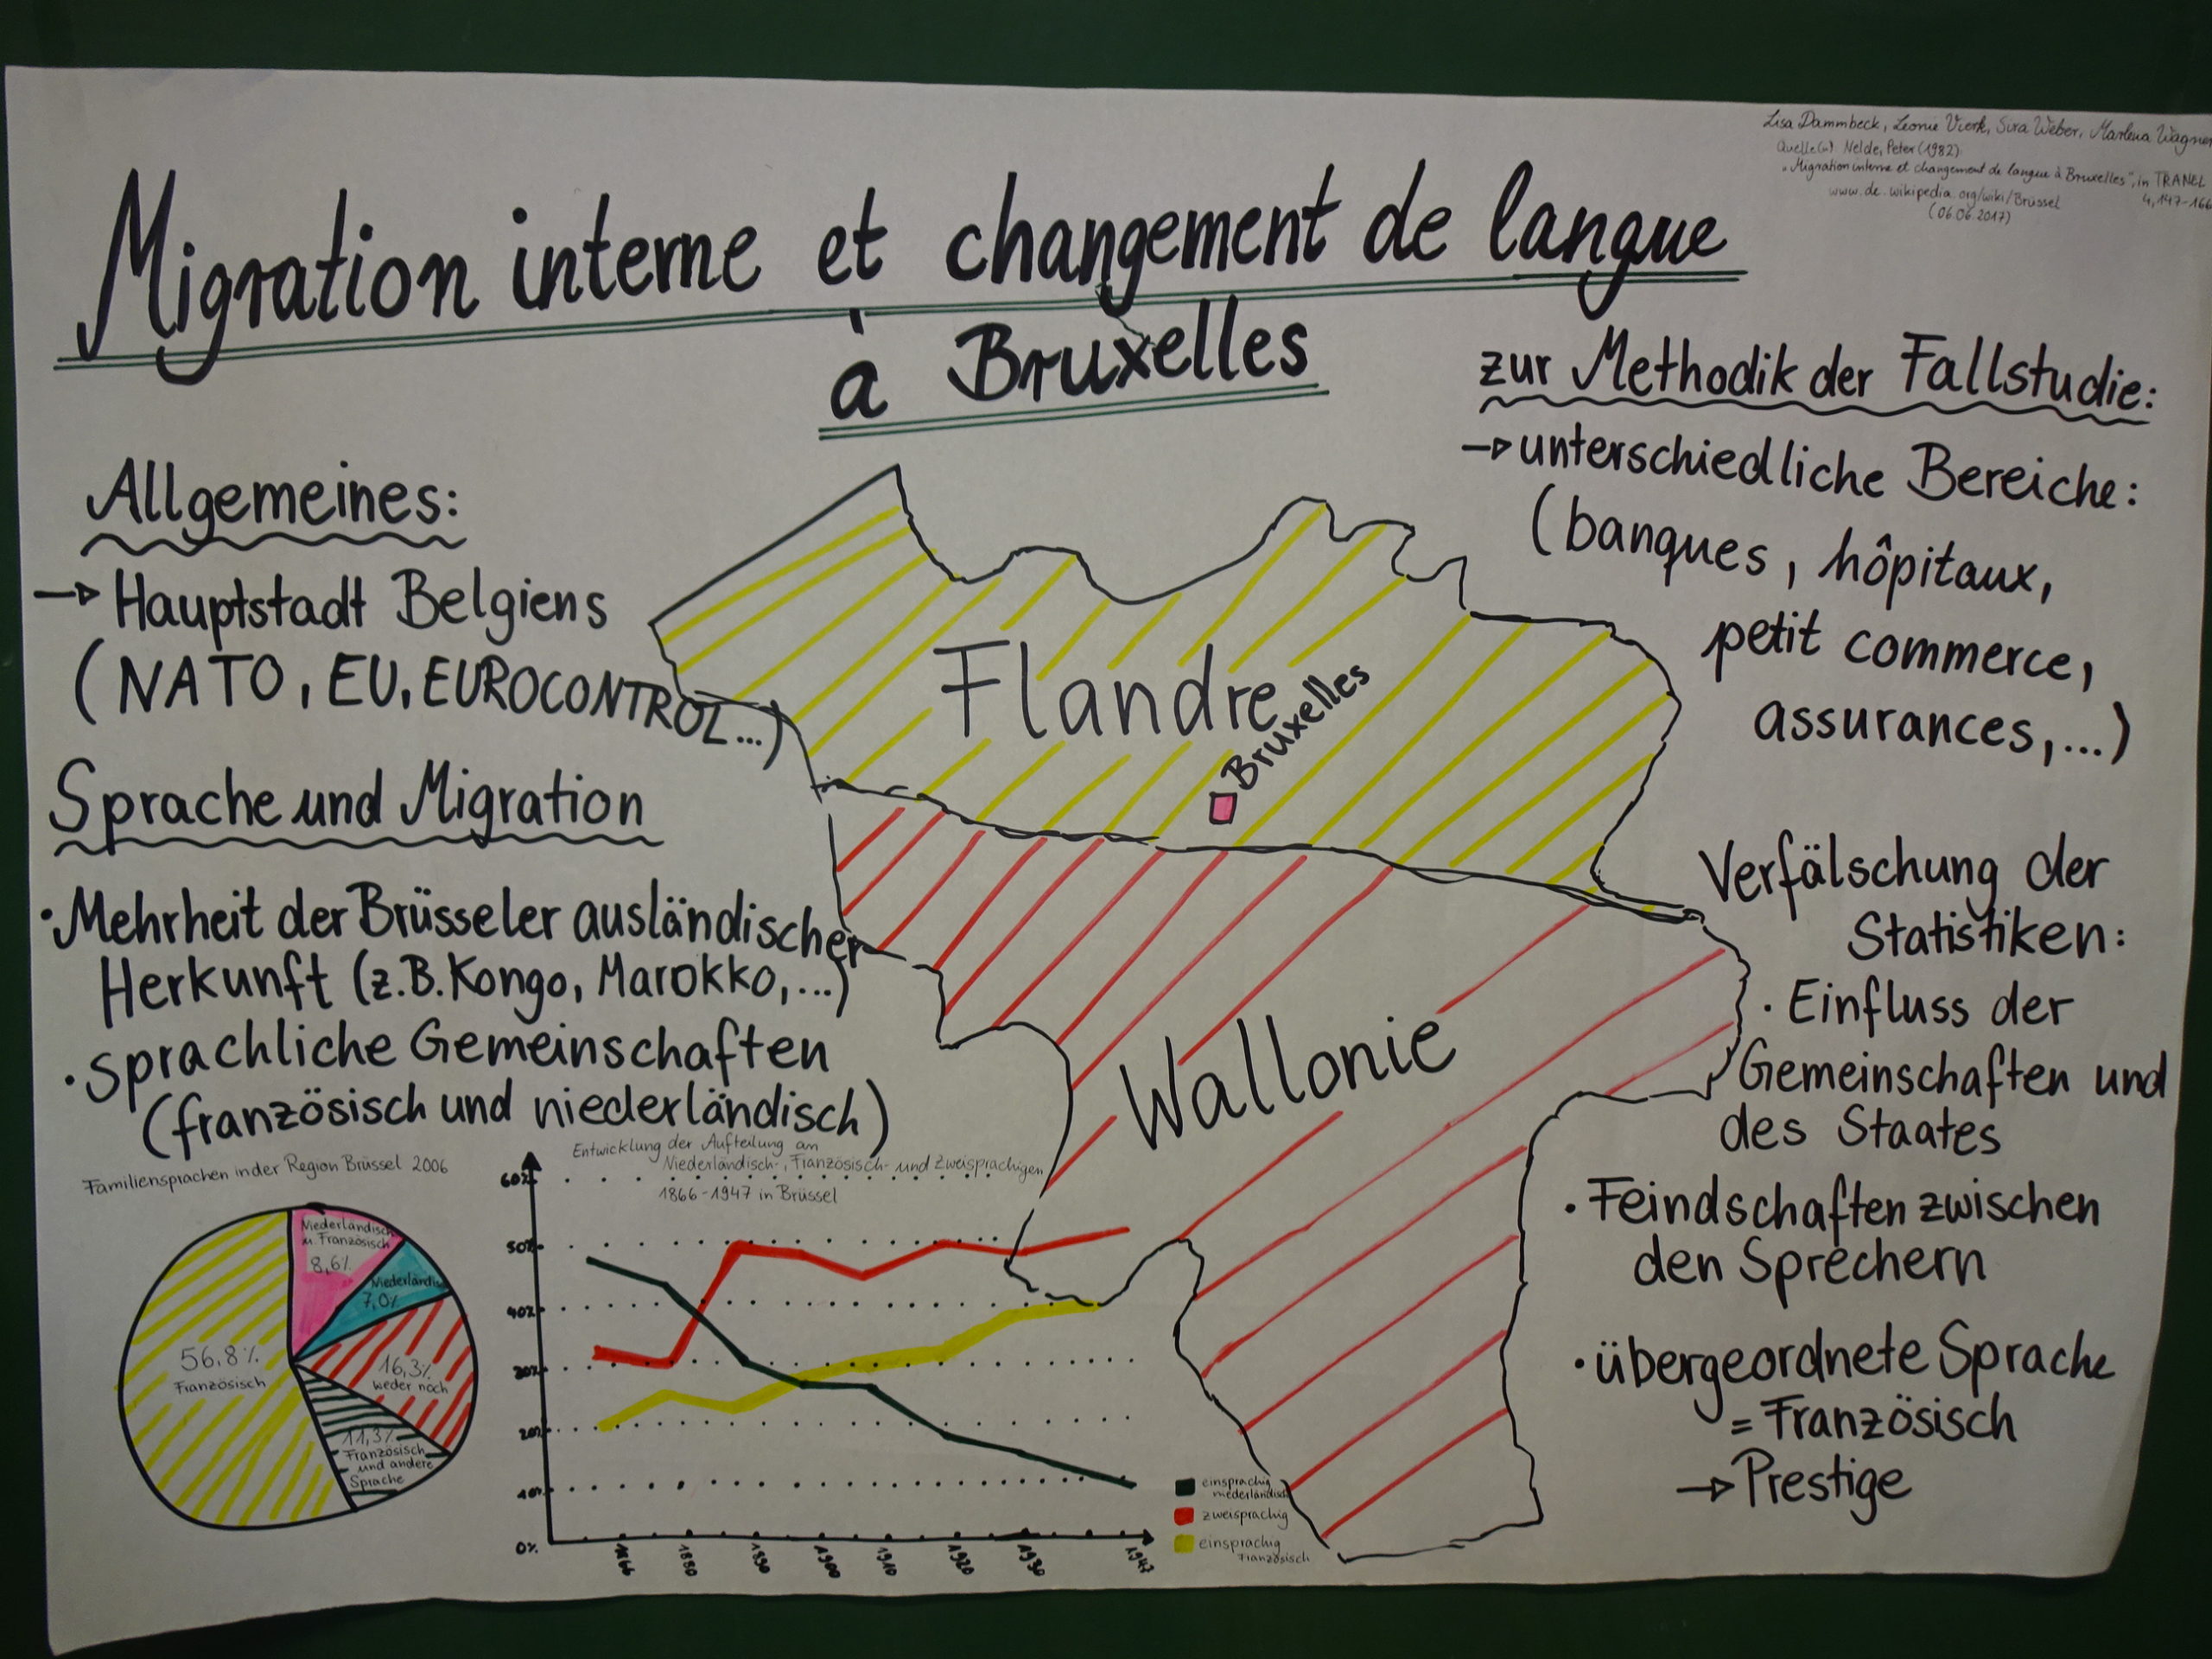 Lisa Dammbeck, Leonie Vierk, Sira Weber, Marlena Wagner
Quelle(n): Nelde, Peter (1982)
„Migration interne et changement de langue à Bruxelles", in TRANEL
4, 147-166
www.de.wikipedia.org/wiki/Brüssel
(06.06.2017)
Migration interne et changement de langue
à Bruxelles
Allgemeines:
→ Hauptstadt Belgiens
(NATO, EU, EUROCONTROL...)
Sprache und Migration
• Mehrheit der Brüsseler ausländischer
Herkunft (z.B. Kongo, Marokko,...)
• sprachliche Gemeinschaften
(französisch und niederländisch)
Familiensprachen in der Region Brüssel 2006
Niederländisch
u. Französisch
8,6%
Niederländisch
7,0%
16,3%
weder noch
11,3%
Französisch
und andere
Sprache
56,8%
Französisch
Entwicklung der Aufteilung an
Niederländisch-, Französisch- und Zweisprachigen
1866-1947 in Brüssel
60%
50%
40%
30%
20%
10%
0%
1866
1880
1890
1900
1910
1920
1930
1947
einsprachig
niederländisch
zweisprachig
einsprachig
Französisch
Flandre
Bruxelles
Wallonie
zur Methodik der Fallstudie:
→ unterschiedliche Bereiche:
(banques, hôpitaux,
petit commerce,
assurances,...)
Verfälschung der
Statistiken:
• Einfluss der
Gemeinschaften und
des Staates
• Feindschaften zwischen
den Sprechern
• übergeordnete Sprache
= Französisch
→ Prestige